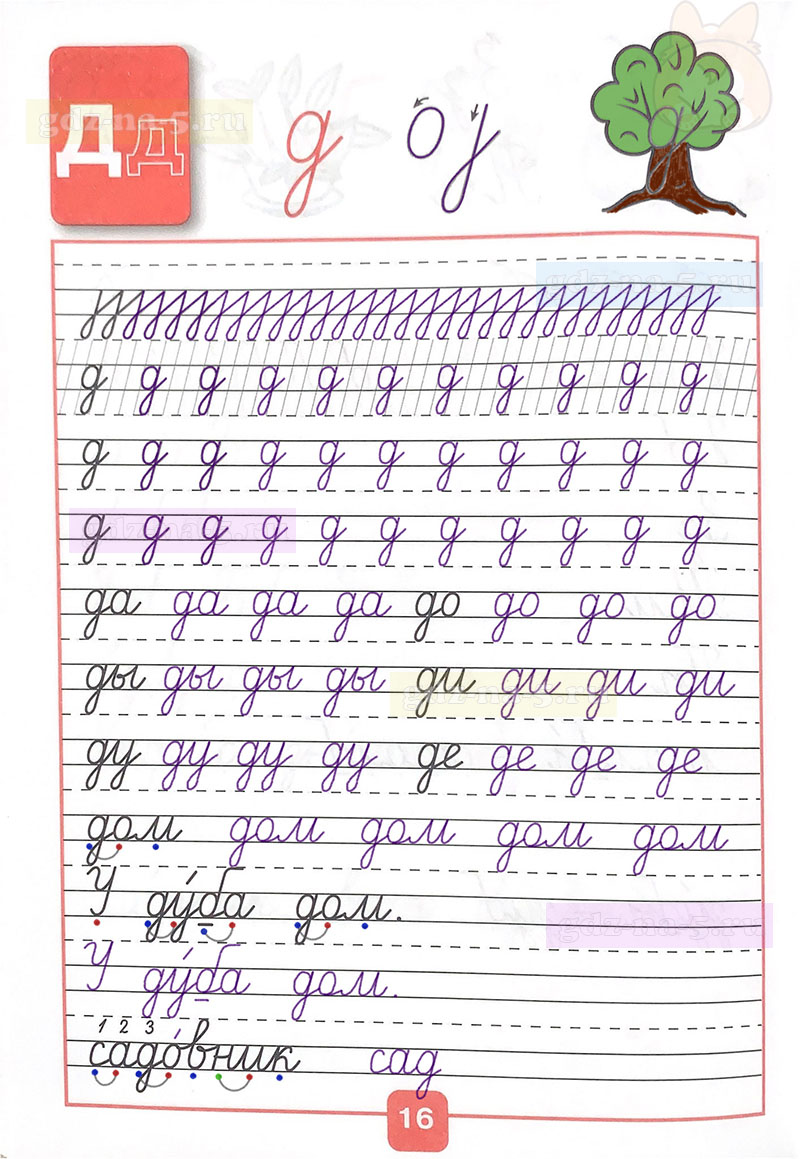 Дд д о ȷ
gdz-na-5.ru
gdz-na-5.ru
д д д д д д д д д д д
д д д д д д д д д д д
д д д д д д д д д д д
gdz-na-5.ru
да да да да до до до до
ды ды ды ды ди ди ди ди
gdz-na-5.ru
ду ду ду ду де де де де
дом дом дом дом дом
У ду́ба дом.
gdz-na-5.ru
У ду́ба дом.
1 2 3
садо́вник сад
16